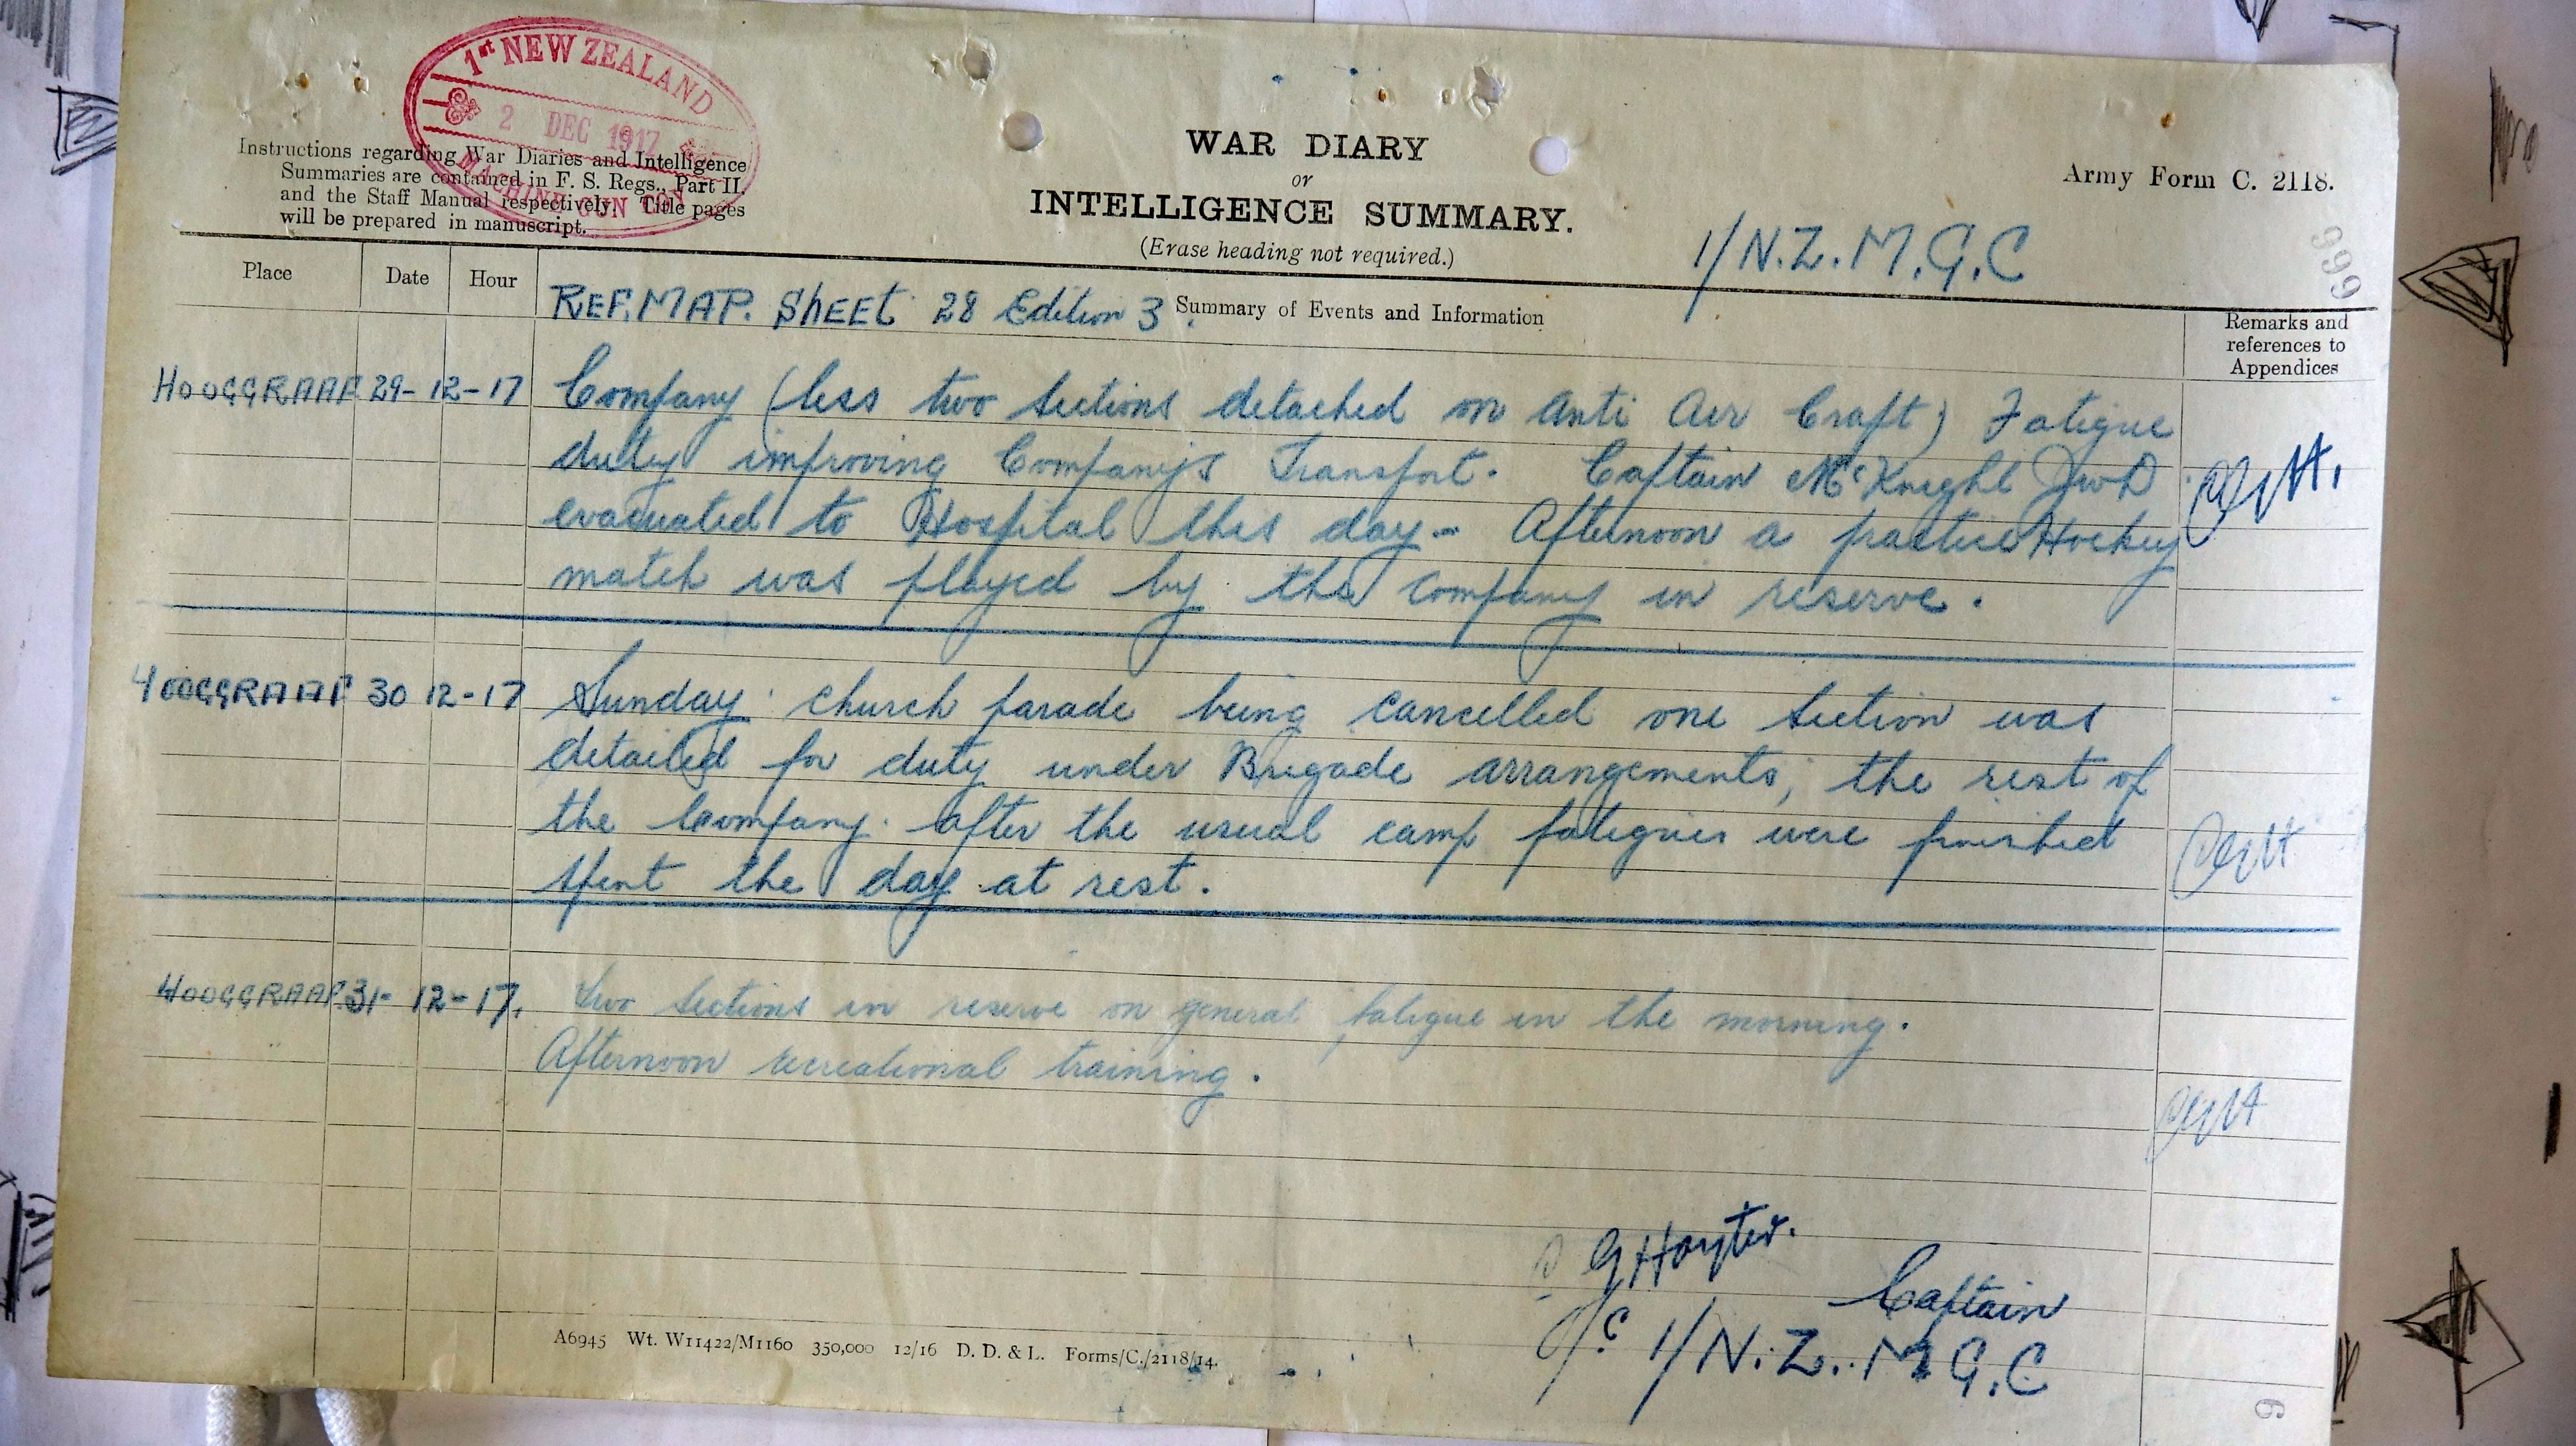 1st NEW ZEALAND
2 DEC 1917
MACHINE GUN
Instructions regarding War Diaries and Intelligence
Summaries are contained in F. S. Regs., Part II.
and the Staff Manual respectively. Title pages
will be prepared in manuscript.
WAR DIARY
or
INTELLIGENCE SUMMARY.
(Erase heading not required.)
Army Form C. 2118.
1/N.Z.M.G.C
999
Place Date Hour
REF. MAP. SHEET 28 Edition 3. Summary of Events and Information
Remarks and
references to
Appendices
HOOGGRAAF 29-12-17 Company (less two sections detached on Anti Air Craft) Fatigue
duty improving Company's Transport. Captain McKnight JWD
evacuated to Hospital this day - Afternoon a practice Hockey
match was played by the company in reserve.
HOOGGRAAF 30 12-17 Sunday church parade being cancelled one section was
detailed for duty under Brigade arrangements, the rest of
the Company. after the usual camp fatigues were finished
spent the day at rest.
HOOGGRAAF. 31-12-17. Two Sections in reserve on general fatigue in the morning.
Afternoon recreational training.
Captain
O/C 1/N.Z. M G.C
A6945 Wt. W11422/M1160 350,000 12/16 D. D. & L. Forms/C./2118/14.
6